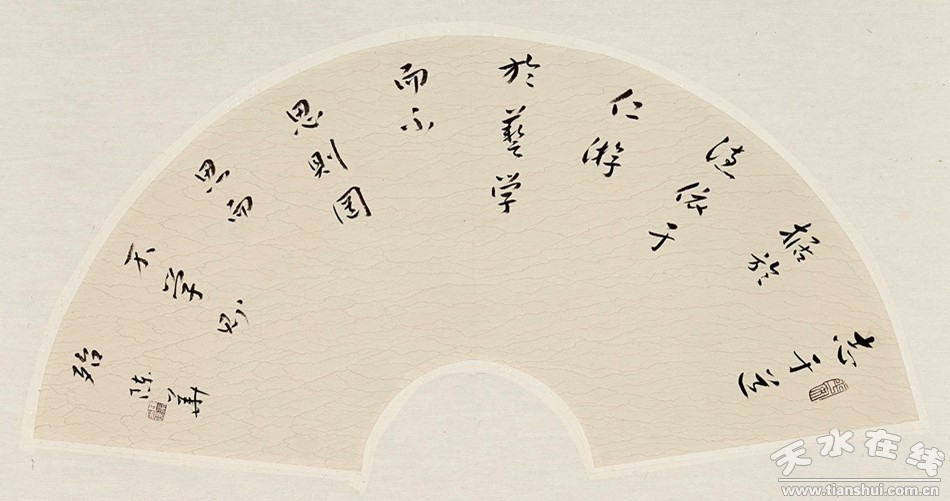 志于道
据於
德依于
仁游
於藝学
而不
思则罔
思而
不学则
殆
陈華
天水在线
www.tianshui.com.cn